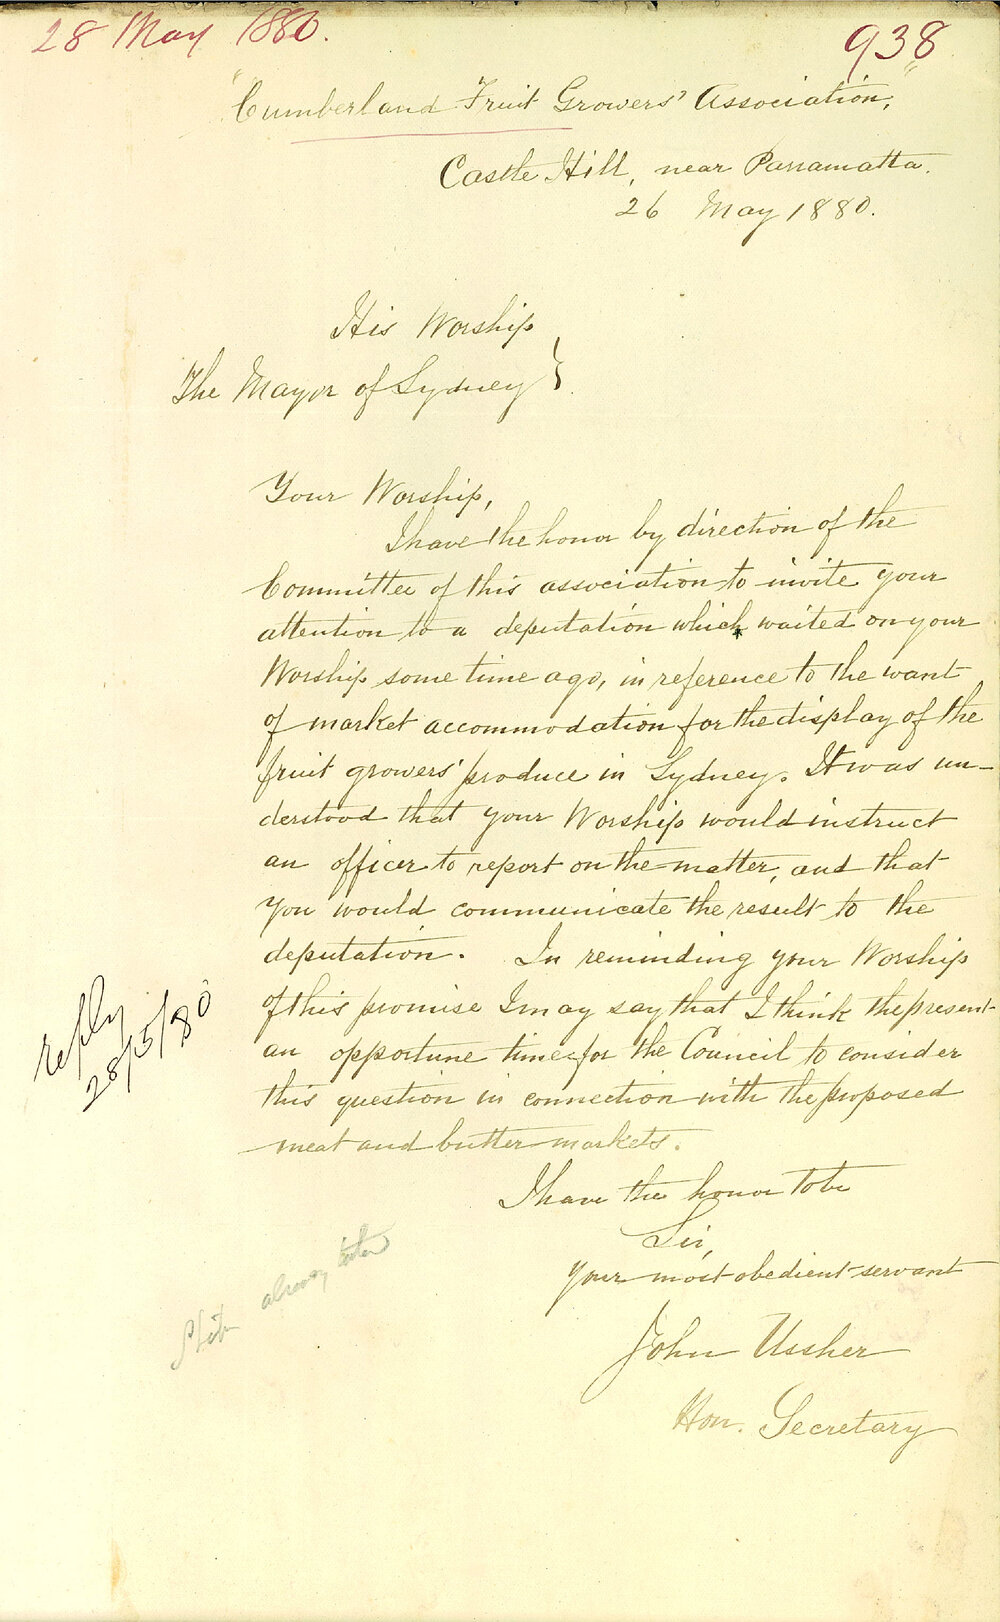 28 May 1880.
938
"Cumberland Fruit Growers' Association,"
Castle Hill, near Parramatta.
26 May 1880.
His Worship
The Mayor of Sydney }
Your Worship,
I have the honor by direction of the
Committee of this association to invite your
attention to a deputation which waited on your
Worship some time ago, in reference to the want
of market accommodation for the display of the
fruit growers' produce in Sydney. It was un-
derstood that your Worship would instruct
an officer to report on the matter, and that
you would communicate the result to the
deputation. In reminding your Worship
of this promise I may say that I think the present
an opportune time for the Council to consider
this question in connection with the proposed
meat and butter markets.
reply
28/5/80
I have the honor to be
Sir,
your most obedient servant
John Ussher
Hon. Secretary
already